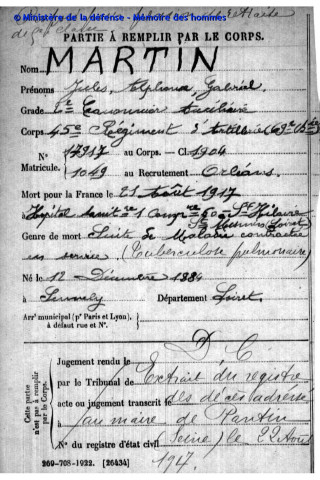 © Ministère de la défense - Mémoire des hommes
PARTIE À REMPLIR PAR LE CORPS.
Nom MARTIN
Prénoms Jules, Alphonse, Gabriel.
Grade 2e Canonnier auxiliaire
Corps 45e Régiment d'Artillerie
N° 17917 au Corps. — Cl. 1904
Matricule. 1049 au Recrutement Orléans.
Mort pour la France le 21 Août 1917
à Hôpital St Hilaire
Genre de mort Suite de Maladie contractée
en service (Tuberculose pulmonaire)
Né le 12 Décembre 1884
à Sennely Département Loiret.
Arrt municipal (pr Paris et Lyon),
à défaut rue et N°.
D C
Cette partie n'est pas à remplir par le Corps.
Jugement rendu le
par le Tribunal de Extrait du registre
acte ou jugement transcrit le des décès adressé
à au maire de Pantin
N° du registre d'état civil (Seine) le 22 Août
1917.
269-708-1922. [26434]